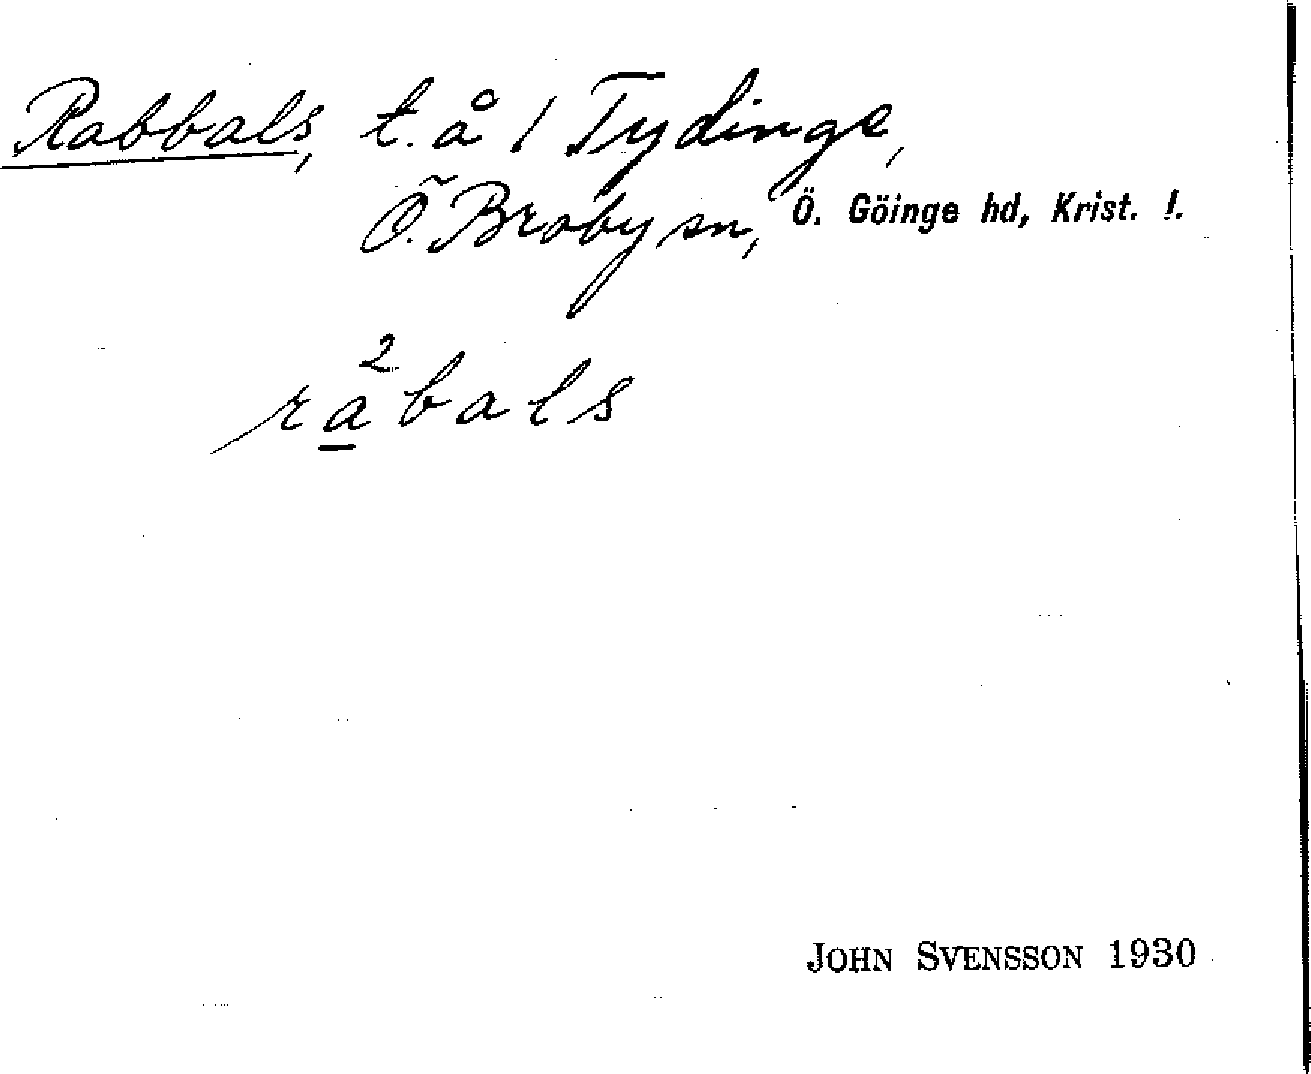 Rabbals, t. å 1 Tydinge,
Ö. Broby sn, Ö. Göinge hd, Krist. l.
ra²bals
JOHN SVENSSON 1930